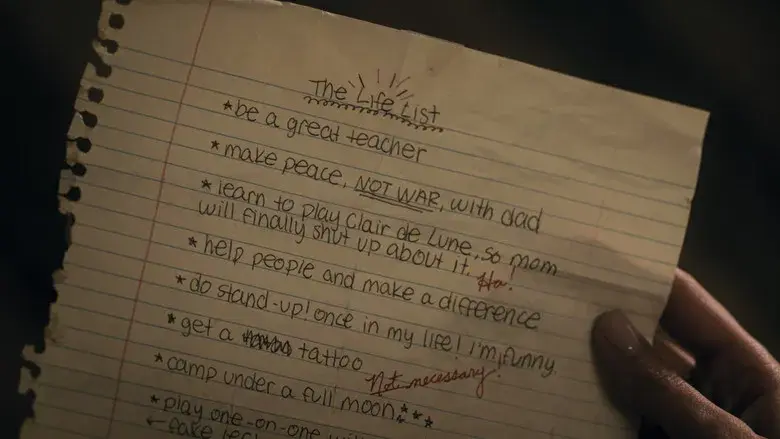 The Life List
*be a great teacher
*make peace, NOT WAR, with dad
*learn to play Clair de Lune, so mom
will finally shut up about it. Ha.
*help people and make a difference
*do stand-up! once in my life! I'm funny.
*get a tattoo
Not necessary!
*camp under a full moon***
*play one-on-one
←fake